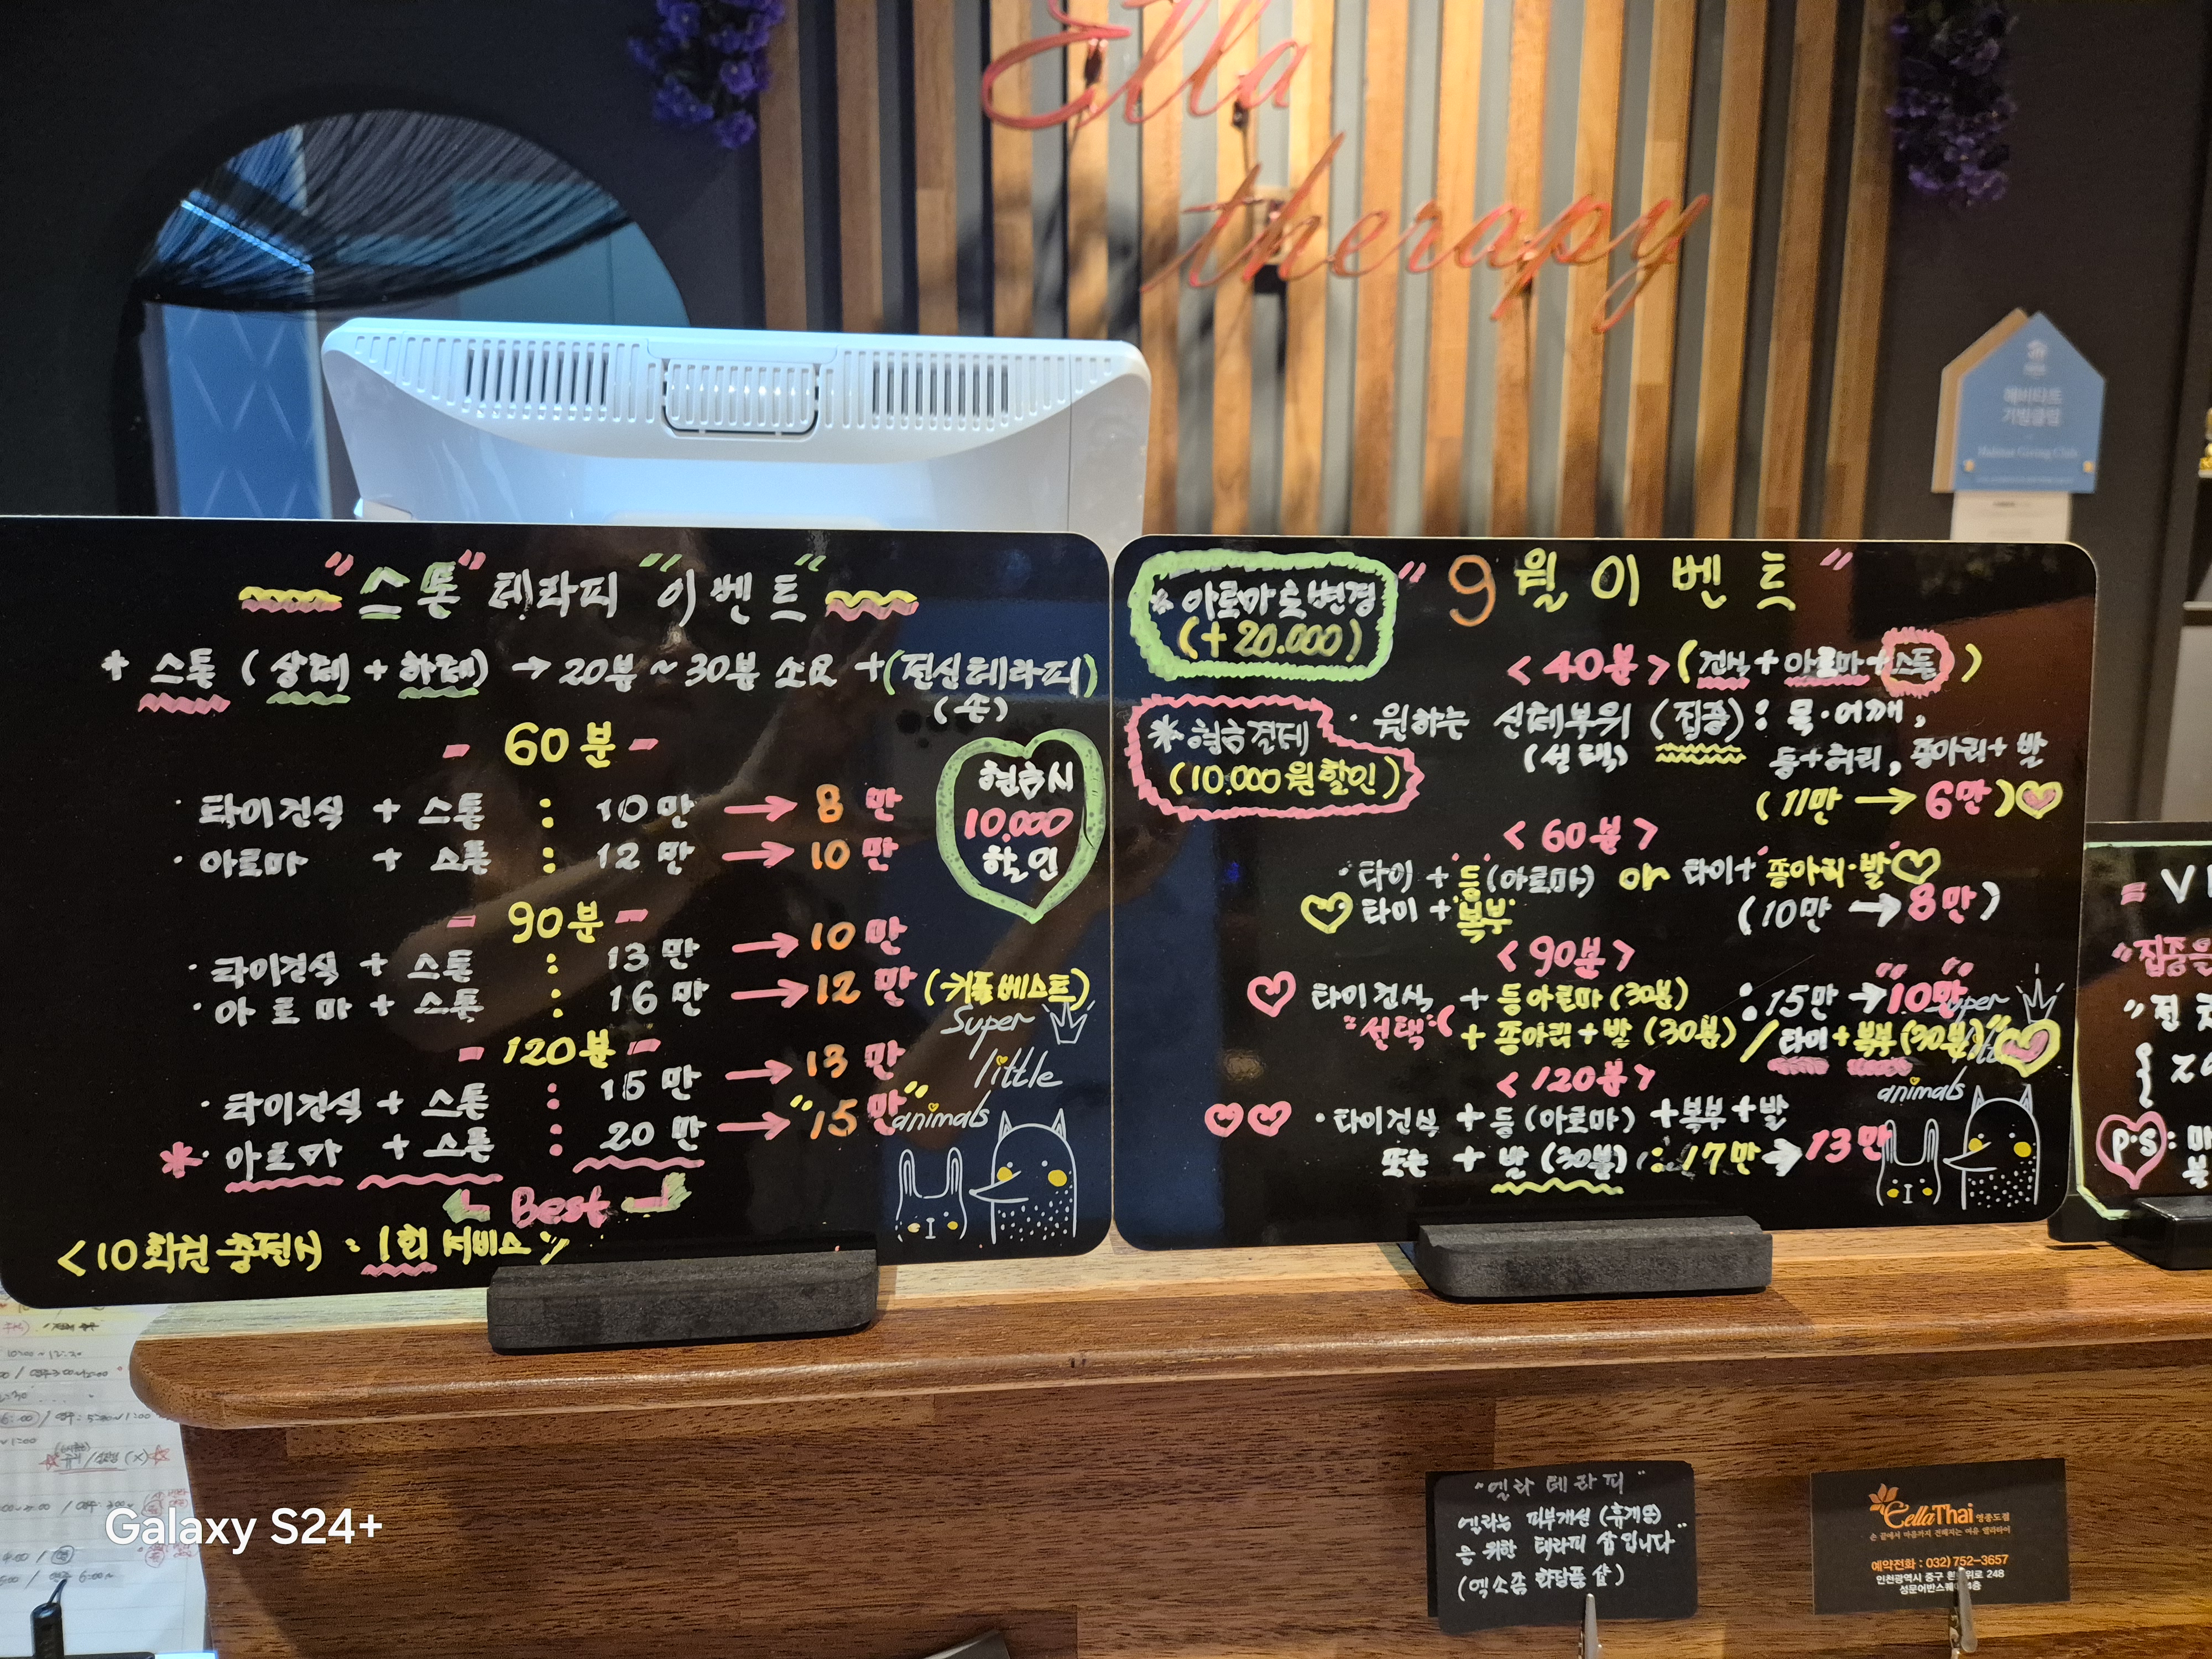 Ella
therapy
해비타트
기빙클럽
Habitat Giving Club
"스톤" 테라피 "이벤트"
+ 스톤 (상체 + 하체) → 20분 ~ 30분 소요 + (전신테라피)
(손)
- 60분 -
· 타이건식 + 스톤 : 10만 → 8만
· 아로마 + 스톤 : 12만 → 10만
현금시
10.000
할인
- 90분 -
· 타이건식 + 스톤 : 13만 → 10만
· 아로마 + 스톤 : 16만 → 12만 (커플베스트)
- 120분 -
· 타이건식 + 스톤 : 15만 → 13만
* · 아로마 + 스톤 : 20만 → "15만"
Best
<10회권 충전시 : 1회 서비스
Super
little
animals
* 아로마로 변경
(+ 20.000)
* 현금결제
(10.000원 할인)
"9월 이벤트"
<40분> (건식 + 아로마 + 스톤)
· 원하는 신체부위 (집중) : 목·어깨,
(선택) 등+허리, 종아리+발
(11만 → 6만)
<60분>
· 타이 + 등 (아로마) or 타이 + 종아리·발
타이 + 복부 (10만 → 8만)
<90분>
타이건식 + 등아로마 (30분) : 15만 → "10만"
"선택" ( + 종아리 + 발 (30분) / 타이 + 복부 (30분)"
<120분>
· 타이건식 + 등 (아로마) + 복부 + 발
또는 + 발 (30분) : 17만 → 13만
Super
animals
"집중
"전
P.S :
"엘라 테라피"
엘라는 피부개선 (휴게의)
을 위한 테라피 샵 입니다"
(엑소좀 화장품 샵)
EllaThai 영종도점
손 끝에서 마음까지 전해지는 여유 엘라타이
예약전화 : 032) 752-3657
인천광역시 중구 흰바위로 248
성문어반스퀘어 4층
Galaxy S24+